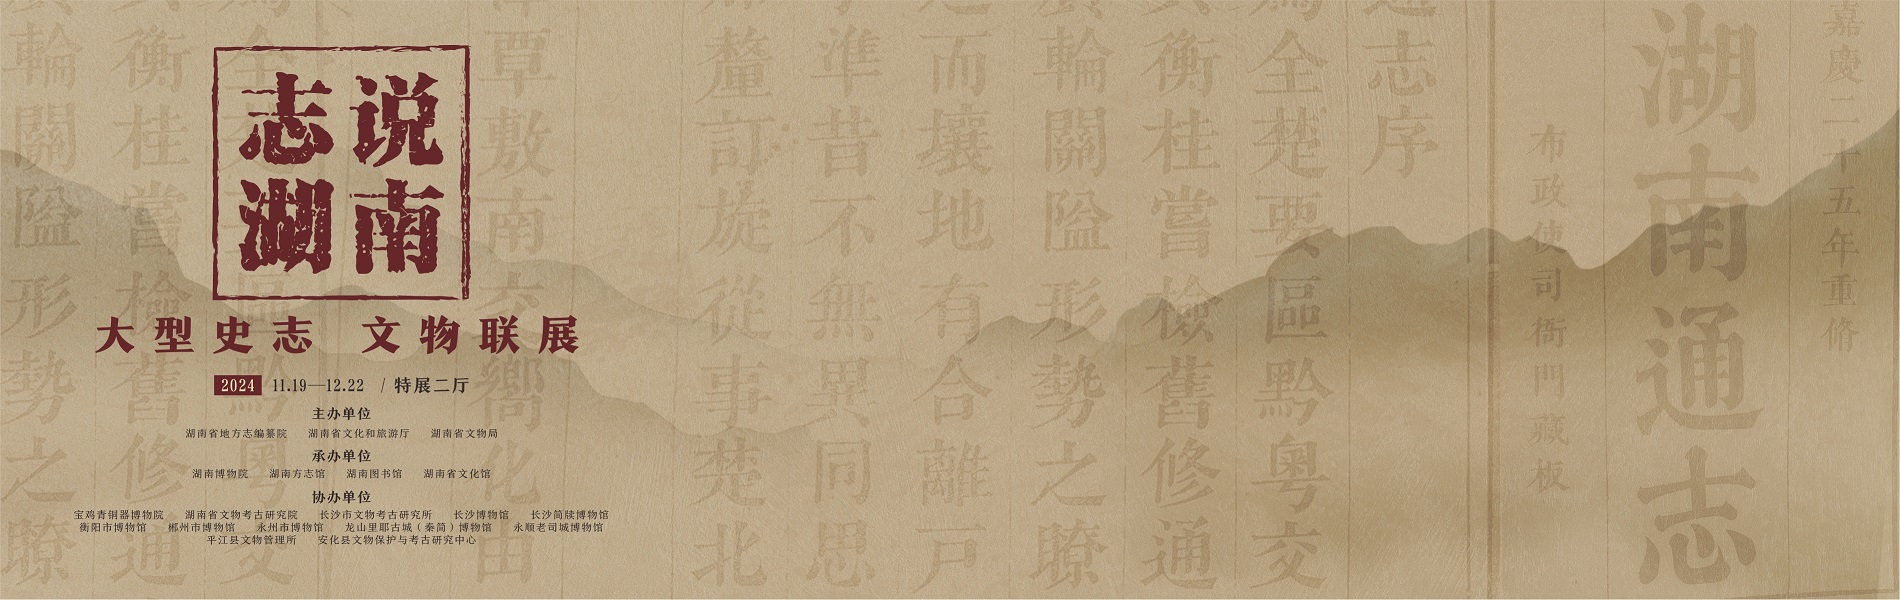 志说
湖南
大型史志 文物联展
2024 11.19—12.22 / 特展二厅
主办单位
湖南省地方志编纂院 湖南省文化和旅游厅 湖南省文物局
承办单位
湖南博物院 湖南方志馆 湖南图书馆 湖南省文化馆
协办单位
宝鸡青铜器博物院 湖南省文物考古研究院 长沙市文物考古研究所 长沙博物馆 长沙简牍博物馆
衡阳市博物馆 郴州市博物馆 永州市博物馆 龙山里耶古城（秦简）博物馆 永顺老司城博物馆
平江县文物管理所 安化县文物保护与考古研究中心
嘉慶二十五年重脩
湖南通志
布政使司衙門藏板
通志序
全楚要區黔粵交
衡桂嘗檢舊修通
輪關隘形勢之瞭
而壤地有合離戶
準昔不無異同思
釐訂旋從事楚北
覃敷南交嚮化由
衡桂嘗檢舊修通
輪關隘形勢之瞭